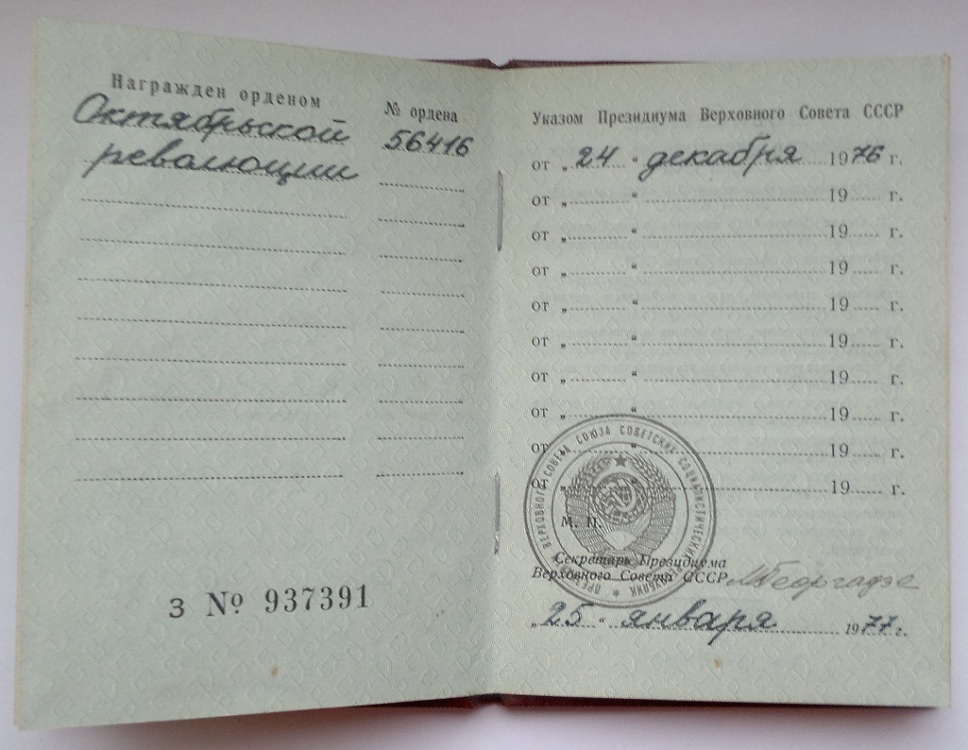 Награжден орденом
№ ордена
Октябрьской
56416
революции
З № 937391
Указом Президиума Верховного Совета СССР
от „ 24 “ декабря 1976 г.
от „ “ 19 г.
от „ “ 19 г.
от „ “ 19 г.
от „ “ 19 г.
от „ “ 19 г.
от „ “ 19 г.
от „ “ 19 г.
от „ “ 19 г.
от „ “ 19 г.
ПРЕЗИДИУМ ВЕРХОВНОГО СОВЕТА СОЮЗА СОВЕТСКИХ СОЦИАЛИСТИЧЕСКИХ РЕСПУБЛИК
М. П.
Секретарь Президиума
Верховного Совета СССР МГеоргадзе
„ 25 “ января 1977 г.